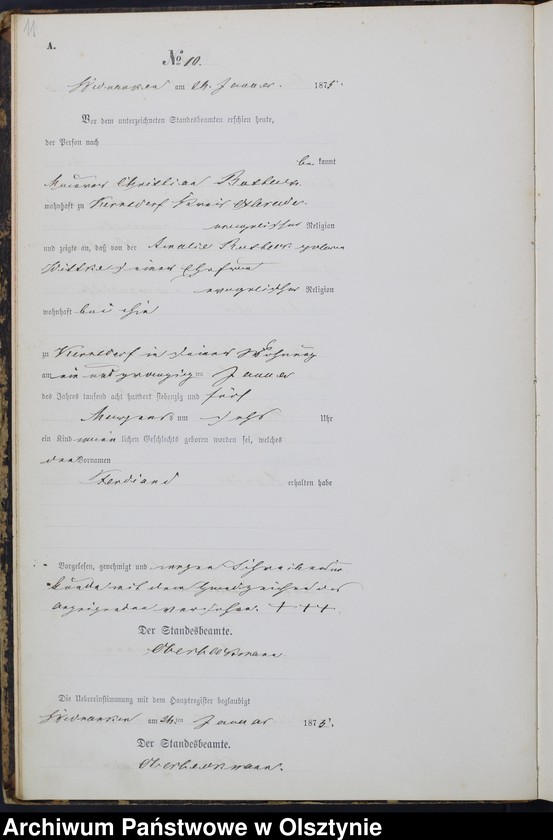 11
A.
No 10.
am 24. Januar 1875.
Vor dem unterzeichneten Standesbeamten erschien heute,
der Person nach
be kannt
Maurer Christian
wohnhaft zu Kreis Osterode
evangelischer Religion
und zeigte an, daß von der Amalie geborene
Wittke seiner Ehefrau
evangelischer Religion
wohnhaft bei ihm
zu in seiner Wohnung
am ein und zwanzigten Januar
des Jahres tausend acht hundert siebenzig und fünf
Morgens um sechs Uhr
ein Kind männ lichen Geschlechts geboren worden sei, welches
den Vornamen
Ferdinand erhalten habe
Vorgelesen, genehmigt und wegen Schreibensun
kunde mit dem Handzeichen des
Anzeigenden versehen. +++
Der Standesbeamte.
Die Uebereinstimmung mit dem Hauptregister beglaubigt
am 24ten Januar 1875.
Der Standesbeamte.
Archiwum Państwowe w Olsztynie